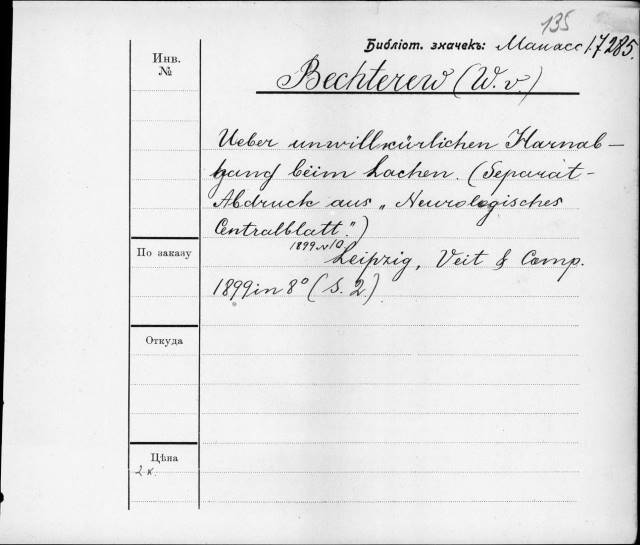 135
Библіот. значекъ: Манасс 17285.
Инв.
№
Bechterew (W. v.)
Ueber unwillkürlichen Harnab-
gang beim Lachen. (Separat-
Abdruck aus „Neurologisches
Centralblatt.")
1899 N 10
Leipzig, Veit & Comp.
1899 in 8° (S. 2.)
По заказу
Откуда
Цѣна
2 к.